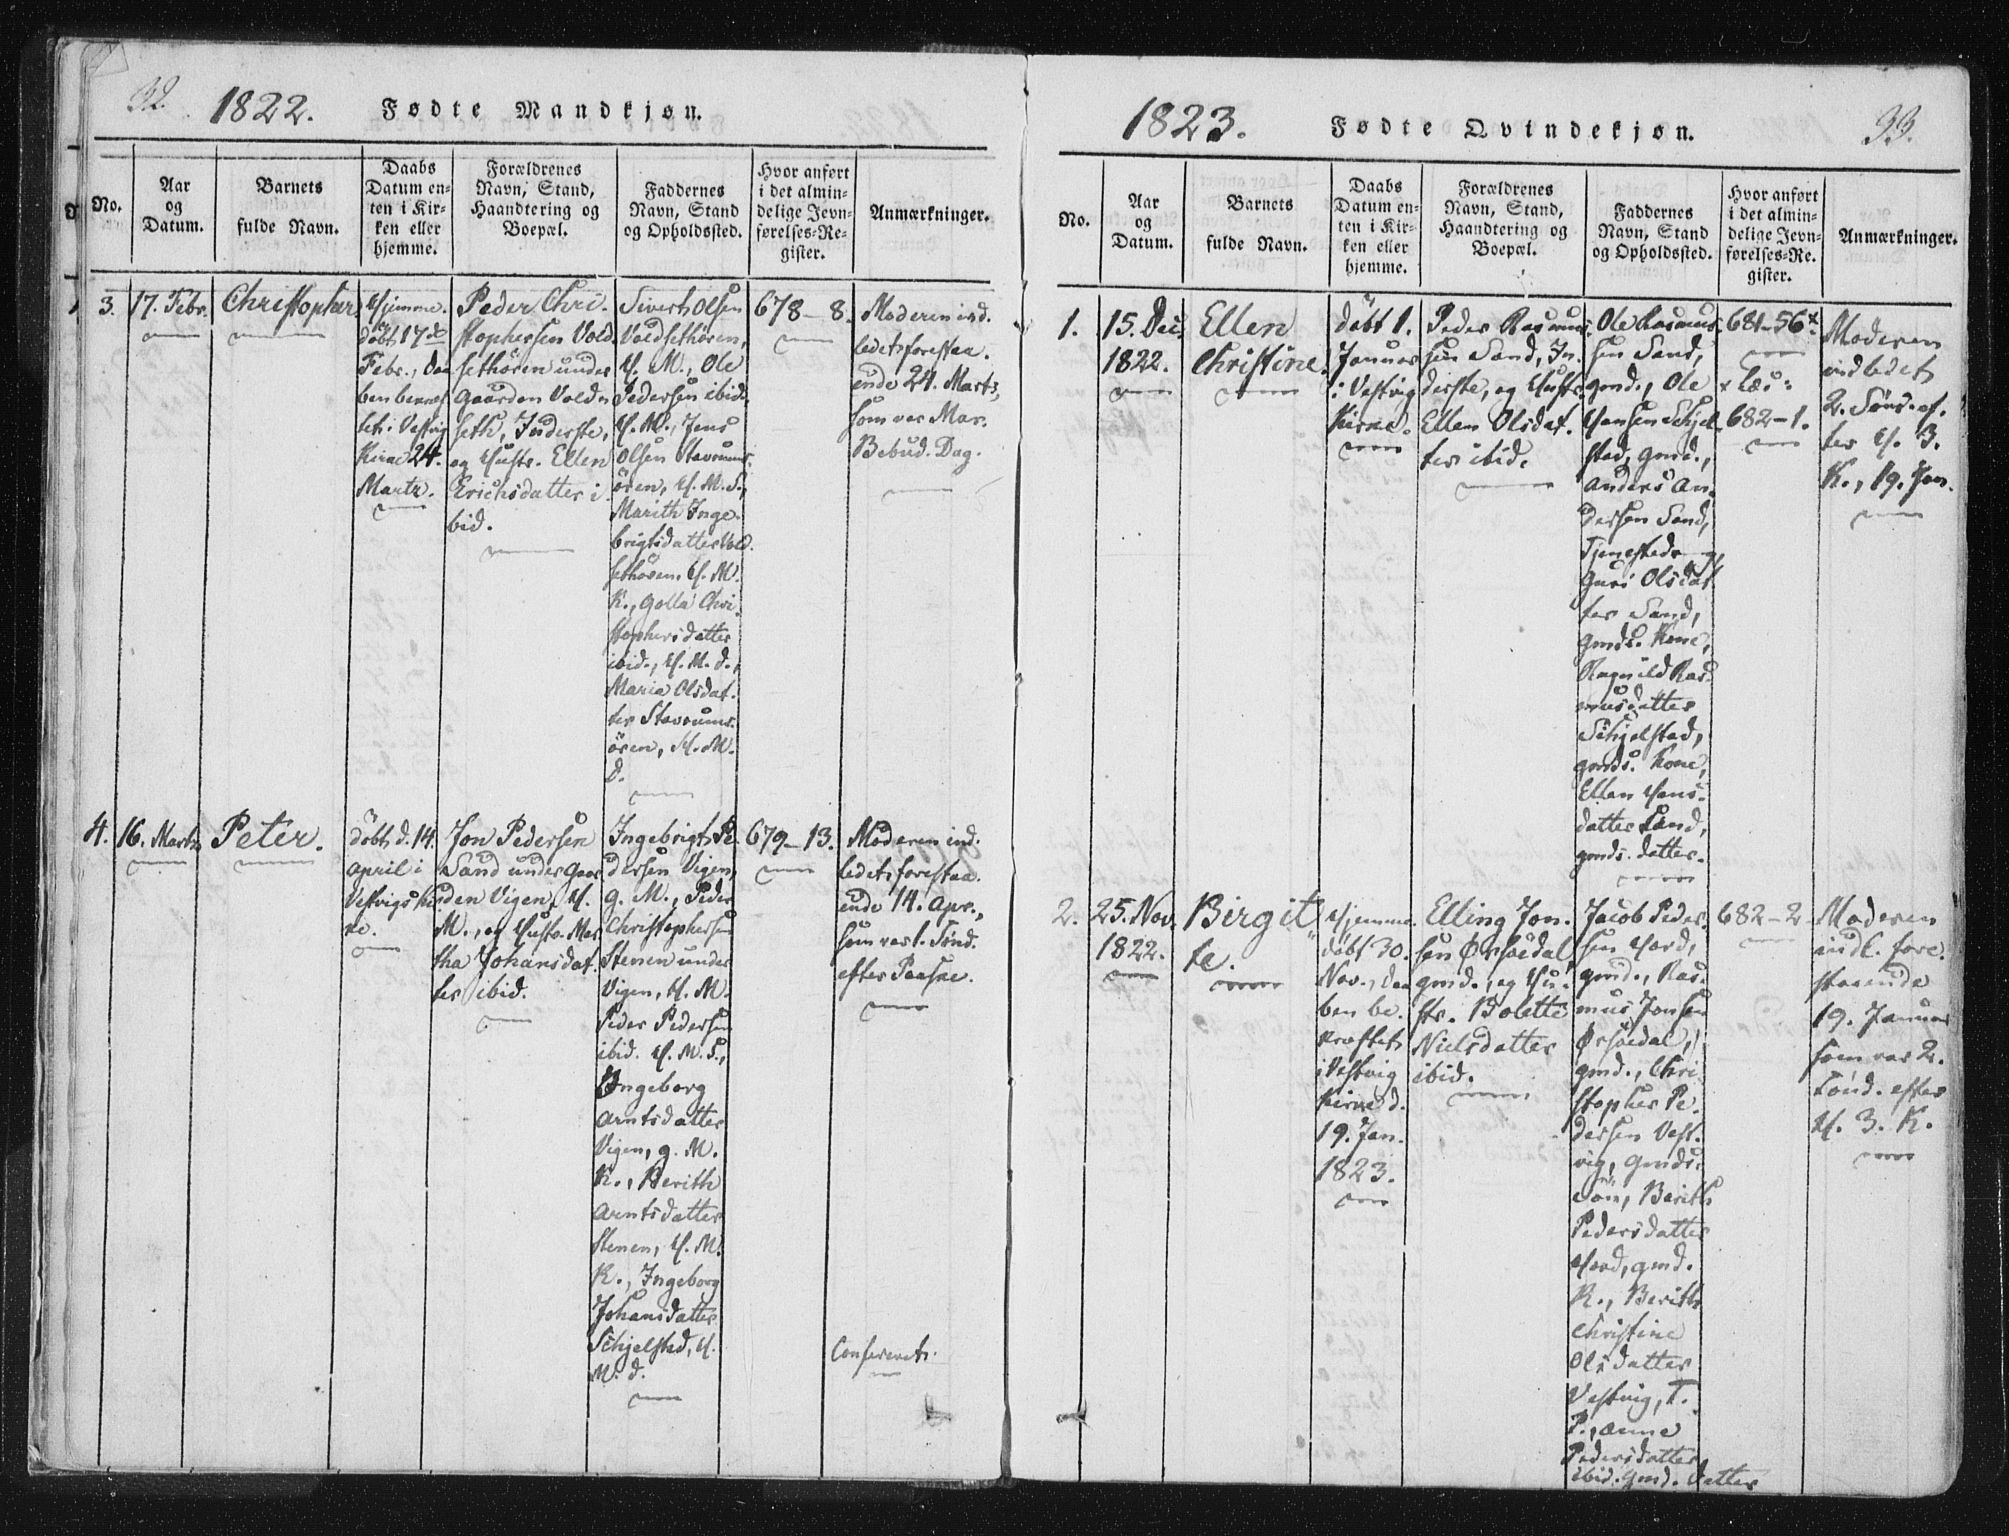 32.
1822.
Fødte Mandkjøn.
No.
Aar
og
Datum.
Barnets
fulde Navn.
Daabs
Datum en-
ten i Kir-
ken eller
hjemme.
Forældrenes
Navn, Stand,
Haandtering og
Boepæl.
Faddernes
Navn, Stand
og Opholdssted.
Hvor anført
i det almin-
delige Jevn-
førelses-Re-
gister.
Anmærkninger.
3.
17. Febr.
Christopher
Hjemme-
døbt 17de
Febr., Daa-
ben bekræf-
tet i Vestvig
Kirke 24.
Marts.
Peder Chri-
stophersen Vold-
sethören under
Gaarden Vold-
seth, Inderste,
og Hustr. Ellen
Erichsdatter i-
bid.
Sivert Olsen
Voldsethören,
H. M., Ole
Pedersen ibid.
H. M., Jens
Olsen Stavrums-
ören, H. M. S.,
Marith Inge-
brigtsdatter Vold-
sethören, H. M.
K., Golla Chri-
stophersdatter
ibid., H. M. d.,
Maria Olsdat-
ter Stavrums-
ören, H. M.
D.
678-8.
Moderen ind-
ledet forestaa-
ende 24. Marts,
som var Mar.
Bebud. Dag.
4.
16. Marts
Peter.
döbt d. 14.
April i
Vestvigs Kir-
ke.
Jon Pedersen
Sand under Gaar-
den Vigen, H.
M., og Hustr. Mar-
tha Johansdat-
ter ibid.
Ingebrigt Pe-
dersen Vigen,
g. M., Peder
Christophersen
Stenen under
Vigen, H. M.
Peder Pedersen
ibid. H. M. S.,
Ingeborg
Arntsdatter
Vigen, g. M.
K., Berith
Arntsdatter
Stenen, H. M.
K., Ingeborg
Johansdatter
Schjelstad, H.
M. d.
679-13.
Moderen ind-
ledet forestaa-
ende 14. Apr.,
som var 1. Sönd.
efter Paaske.
Confereret.
1823.
Fødte Qvindekjøn.
33.
No.
Aar
og
Datum.
Barnets
fulde Navn.
Daabs
Datum en-
ten i Kir-
ken eller
hjemme.
Forældrenes
Navn, Stand,
Haandtering og
Boepæl.
Faddernes
Navn, Stand
og Opholdssted.
Hvor anført
i det almin-
delige Jevn-
førelses-Re-
gister.
Anmærkninger.
1.
15. Dec.
1822.
Ellen
Christine.
döbt 1.
Januar
i Vestvig
Kirke.
Peder Rasmus-
sen Sand, In-
derste, og Hustr.
Ellen Olsdat-
ter ibid.
Ole Rasmus-
sen Sand,
gmd., Ole
Hansen Schjel-
stad, gmd.,
Anders An-
dersen Sand,
Tjenestedr.,
Guri Olsdat-
ter Sand,
Gmds. Kone,
Ragnild Ras-
musdatter
Schjelstad,
gmds. Kone,
Ellen Hans-
datter Sand,
gmds. datter.
681-56 x
x Læs:
682-1.
Moderen
indledet
2. Sönd. ef-
ter H. 3.
K., 19. Jan.
2.
25. Nov.
1822.
Birgit-
te.
Hjemme-
döbt 30.
Nov., Daa-
ben be-
kræftet
i Vestvig
Kirke d.
19. Jan.
1823.
Elling Jon-
sen Örsöedal
gmd., og Hu-
str. Bolette
Nielsdatter
ibid.
Jacob Peder-
sen Hard,
gmd., Ras-
mus Jonsen
Örsöedal,
gmd., Chri-
stopher Pe-
dersen Vest-
vig, gmds.
Sön, Berith
Pedersdatter
Hard, gmd.
K., Berith
Christine
Olsdatter
Vestvig, T.
P., Anne
Pedersdatter
ibid. Gmd. datter
682-2
Moderen
indl. fore-
staaende
19. Januar
som var 2.
Sönd. efter
H. 3. K.